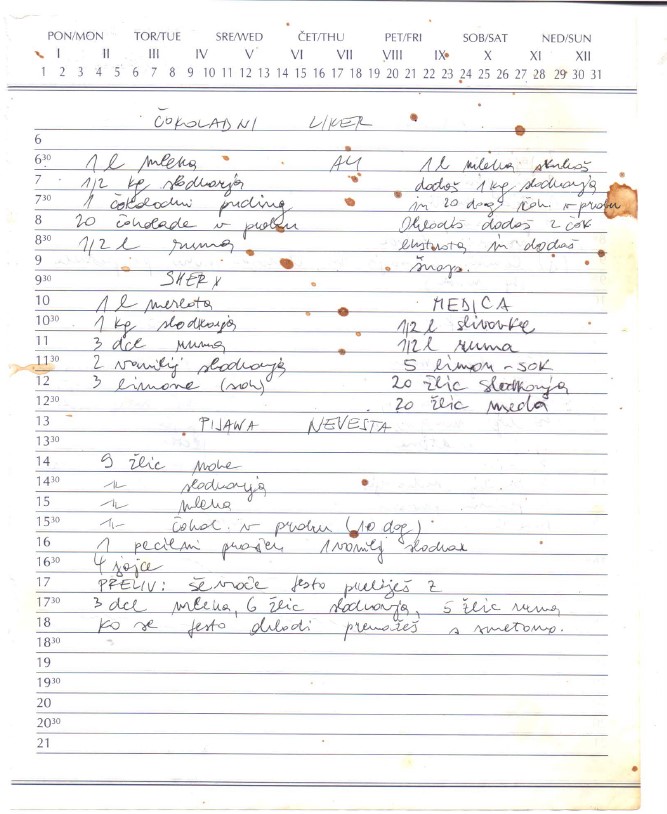 PON/MON TOR/TUE SRE/WED ČET/THU PET/FRI SOB/SAT NED/SUN
I II III IV V VI VII VIII IX X XI XII
1 2 3 4 5 6 7 8 9 10 11 12 13 14 15 16 17 18 19 20 21 22 23 24 25 26 27 28 29 30 31
ČOKOLADNI LIKER
6
6 30 1 l mleka ALI 1 l mleka skuhaš
7 1/2 kg sladkorja dodaš 1 kg sladkorja
7 30 1 čokoladni puding in 20 dag čok v prahu
8 20 čokolade v prahu Ohladiš dodaš 2 čok
8 30 1/2 l ruma ekstrata in dodaš
9 šnops.
9 30 SHERY
10 1 l merlota MEDICA
10 30 1 kg sladkorja 1/2 l slivovke
11 3 dcl ruma 1/2 l ruma
11 30 2 vanilij sladkorja 5 limon - sok
12 3 limone (sok) 20 žlic sladkorja
12 30 20 žlic meda
13 PIJANA NEVESTA
13 30
14 9 žlic moke
14 30 -||- sladkorja
15 -||- mleka
15 30 -||- čokol. v prahu (10 dag)
16 1 pecilni prašek 1 vanilij sladkor
16 30 4 jajce
17 PRELIV: še vroče testo preliješ z
17 30 3 dcl mleka, 6 žlic sladkorja, 5 žlic ruma
18 ko se testo ohladi premažeš s smetano.
18 30
19
19 30
20
20 30
21